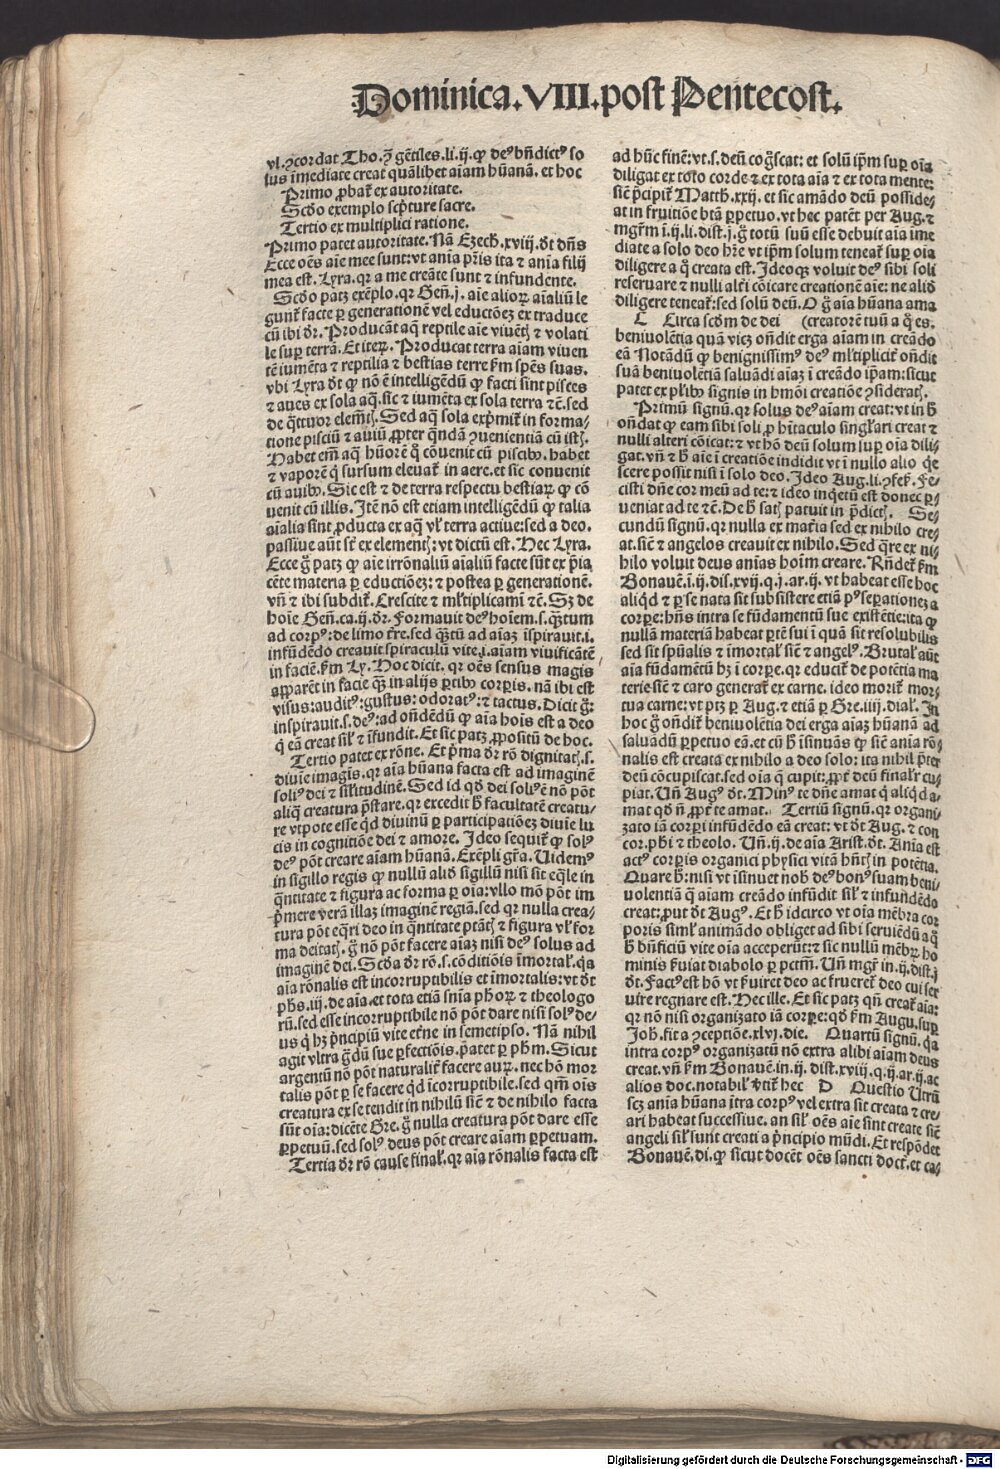 Dominica.VIII.post Pentecost.
vl. ↄcordat Tho.ↄ̃ gẽtiles.li.ij.ꝙ deꝰ bñdictꝰ so
lus ĩmediate creat quãlibet aĩam hũanã. et hoc
Primo ꝓbat᷑ ex autoritate.
Scd̃o exemplo scp̃ture sacre.
Tertio ex multiplici ratione.
Primo patet autoritate. Nã Ezech̃.xviij.d̃t dñs
Ecce oẽs aĩe mee sunt: vt anĩa pr̃is ita ⁊ anĩa filij
mea est. Lyra. qꝛ a me creãte sunt ⁊ infundente.
Scd̃o patꝫ exẽplo. qꝛ Gen̄.j. aĩe alioꝝ aĩaliũ le
gunt᷑ facte per generationẽ vel eductõeꝫ ex traduce
cũ ibi dr̃. Producãt aq̃ reptile aĩe viuẽtꝭ ⁊ volati
le suꝑ terrã. Et iteꝝ. Producat terra aĩam viuen
tẽ iumẽta ⁊ reptilia ⁊ bestias terre ẜm spẽs suas.
vbi Lyra d̃t ꝙ nõ ẽ intelligẽdũ ꝙ facti sint pisces
⁊ aues ex sola aq̃. sic ⁊ iumẽta ex sola terra ⁊c̃. sed
de q̃ttuor elem̃tꝭ. Sed aq̃ sola exp̃mit᷑ in forma⸗
tione pisciũ ⁊ auiũ ꝓpter q̃ndã ↄuenientiã cũ istꝭ.
Habet em̃ aq̃ hũorẽ q̊ cõuenit cũ piscibꝰ. habet
⁊ vaporẽ q̇ sursum eleuat᷑ in aere. et sic conuenit
cũ auibꝰ. Sic est ⁊ de terra respectu bestiaꝝ ꝙ cõ
uenit cũ illis. Itẽ nõ est etiam intelligẽdũ ꝙ talia
aĩalia sint ꝓducta ex aq̃ vl̓ terra actiue: sed a deo.
passiue aũt sĩt ex elementꝭ: vt dictũ est. Hec Lyra.
Ecce g̊ patꝫ ꝙ aĩe irrõnaliũ aĩaliũ facte sũt ex p̃ia
cẽte materia ꝑ eductiõeꝫ: ⁊ postea ꝑ generationẽ.
vñ ⁊ ibi subdit᷑. Crescite ⁊ ml̓tiplicamĩ ⁊c̃. Sꝫ de
hoĩe Gen̄.ca.ij.dr̃. Formauit deꝰ hoĩem.s. q̃ꝫtum
ad corpꝰ: de limo t̃re. sed q̃ꝫtũ ad aĩaꝫ ĩspirauit.i.
infũdẽdo creauit spiraculũ vite.i. aĩam viuificãtẽ
in faciẽ. ẜm Ly. Hoc dicit. qꝛ oẽs sensus magis
apparẽt in facie q̃ꝫ in alijs ꝑtibꝰ corꝑis. nã ibi est
visus: auditꝰ: gustus: odoratꝰ: ⁊ tactus. Dicit g̊:
inspirauit.s.deꝰ: ad oñdẽdũ ꝙ aĩa hoĩs est a deo
q̇ eã creat sil̓ ⁊ ĩfundit. Et sic patꝫ ꝓpositũ de hoc.
Tertio patet ex rõne. Et p̃ma dr̃ rõ dignitatꝭ.s.
diuĩe imagĩs. qꝛ aĩa hũana facta est ad imaginẽ
soliꝰ dei ⁊ sil̓itudinẽ. Sed id qd̃ dei soliꝰ ẽ nõ põt
aliq̃ creatura p̃stare. qꝛ excedit h̃ facultatẽ creatu⸗
re vtpote esse qd̃ diuinũ ꝑ participatiõeꝫ diuĩe lu
cis in cognitiõe dei ⁊ amore. Ideo sequit᷑ ꝙ solꝰ
deꝰ põt creare aĩam hũanã. Exẽpli gr̃a. Uidemꝰ
in sigillo regis ꝙ nullũ aliud sigillũ nisi sit eq̃le in
q̃ntitate ⁊ figura ac forma ꝑ oĩa: vllo mõ põt im
p̃mere verã illaꝫ imaginẽ regiã. sed qꝛ nulla crea⸗
tura põt eq̃ri deo in q̃ntitate ptãtꝭ ⁊ figura vl̓ for
ma deitatꝭ. g̊ nõ põt facere aĩaꝫ nisi deꝰ solus ad
imaginẽ dei. Scd̃a dr̃ rõ.s. cõditiõis ĩmortal̓. qꝛ
aĩa rõnalis est incorruptibilis et ĩmortalis: vt d̃t
ph̃s.iij. de aĩa. et tota etiã snĩa ph̃oꝝ ⁊ theologo
rũ. sed esse incorruptibile nõ põt dare nisi solꝰ de⸗
us q̇ hꝫ p̃ncipiũ vite et̃ne in semetipso. Nã nihil
agit vltra g̃dũ sue ꝑfectiõis. p̃atet ꝑ ph̃m. Sicut
argentũ nõ põt naturalit᷑ facere auꝝ. nec hõ mor
talis põt ꝑ se facere qd̃ ĩcorruptibile. sed qm̃ oĩs
creatura ex se tendit in nihilũ sicut̃ ⁊ de nihilo facta
sũt oĩa: dicẽte Gre. g̊ nulla creatura põt dare esse
ꝑpetuũ. sed solꝰ deus põt creare aĩam ꝑpetuam.
Tertia dr̃ rõ cause final̓. qꝛ aĩa rõnalis facta est
ad hũc finẽ: vt.s. deũ cog̃scat: et solũ ip̃m suꝑ oĩa
diligat ex toto corde ⁊ ex tota aĩa ⁊ ex tota mente:
sic̃ p̃cipit᷑ Matth̃.xxij. et sic amãdo deũ posside⸗
at in fruitiõe btã ꝑpetuo. vt hec patẽt per Aug. ⁊
mgr̃m ĩ.ij.li.dist.j. g̊ totũ suũ esse debuit aĩa ime
diate a solo deo hr̃e vt ip̃m solum teneat᷑ suꝑ oĩa
diligere a q̊ creata est. Ideoqꝫ voluit deꝰ sibi soli
reseruare ⁊ nulli alt̃i cõicare creationẽ aĩe: ne aliud
diligere teneat᷑: sed solũ deũ. O g̊ aĩa hũana ama
C Circa scd̃m de dei (creatorẽ tuũ a q̊ es.
beniuolẽtia quã vicꝫ oñdit erga aĩam in creãdo
eã Notãdũ ꝙ benignissimꝰ deꝰ ml̓tiplicit᷑ oñdit
suã beniuolẽtiã saluãdi aĩaꝫ ĩ creãdo ip̃am: sicut
patet ex pl̓ibꝰ signis in hm̃oi creatiõe ↄsideratꝭ.
Primũ signũ. qꝛ solus deꝰ aĩam creat: vt in h̃
oñdat ꝙ eam sibi soli ꝓ hĩtaculo singl̓ari creat ⁊
nulli alteri cõicat: ⁊ vt hõ deũ solum suꝑ oĩa dili⸗
gat. vñ ⁊ h̃ aĩe ĩ creatiõe indidit vt ĩ nullo alio q̇e
scere possit nisi ĩ solo deo. Ideo Aug.li.ↄfess̃. Fe⸗
cisti dñe cor meũ ad te: ⁊ ideo inq̇etũ est donec ꝑ⸗
ueniat ad te ⁊c̃. De h̃ satꝭ patuit in p̃dictꝭ. Se⸗
cundũ signũ. qꝛ nulla ex mat̃ia sed ex nihilo cre⸗
at. sic̃ ⁊ angelos creauit ex nihilo. Sed q̃re ex ni⸗
hilo voluit deus anĩas hoĩm creare. Rñdet᷑ ẜm
Bonauẽ.ĩ.ij.dis.xvij.q.j.ar.ij. vt habeat esse hoc
aliqd̃ ⁊ ꝑ se nata sit subsistere etiã pꝰ seꝑationeꝫ a
corꝑe: hñs intra se fũdamentũ sue existẽtie: ita ꝙ
nullã materiã habeat ꝑtẽ sui ĩ quã sit resolubilis
sed sit spũalis ⁊ ĩmortal̓ sic̃ ⁊ angelꝰ. Brutal̓ aũt
aĩa fũdamẽtũ hꝫ ĩ corꝑe. qꝛ educit᷑ de potẽtia ma
terie sic̃ ⁊ caro generat᷑ ex carne. ideo morit᷑ mor⸗
tua carne: vt ptꝫ ꝑ Aug. ⁊ etiã ꝑ Gre.iiij.dial̓. In
hoc g̊ oñdit᷑ beniuolẽtia dei erga aĩaꝫ hũanã ad
saluãdũ ꝑpetuo eã. et cũ h̃ ĩsinuãs ꝙ sic̃ anĩa rõ⸗
nalis est creata ex nihilo a deo solo: ita nihil p̃ter
deũ cõcupiscat. sed oĩa q̃ cupit: ꝓpt̃ deũ final̓r cu⸗
piat. Uñ Augꝰ d̃t. Minꝰ te dñe amat q̇ aliqd̃ a⸗
mat qd̃ nõ ꝓpt̃ te amat. Tertiũ signũ. qꝛ organi⸗
zato iã corꝑi infũdẽdo eã creat: vt d̃t Aug. ⁊ con
cor. ph̃i ⁊ theolo. Uñ.ij. de aĩa Arist. d̃t. Anĩa est
actꝰ corꝑis organici physici vitã hñtꝭ in potẽtia.
Quare h̃: nisi vt ĩsinuet nob̃ deꝰ bonꝰ suam beni⸗
uolentiã q̃ aĩam creãdo infũdit sil̓ ⁊ infundẽdo
creat: ꝓut d̃t Augꝰ. Et h̃ idcirco vt oĩa mẽbra cor
poris siml̓ animãdo obliget ad sibi seruiẽdũ a q̊
h̃ bñficiũ vite oĩa acceperũt: ⁊ sic nullũ mẽbꝝ ho
minis ẜuiat diabolo ꝑ pctm̃. Uñ mgr̃ in.ij.dist.j
d̃t. Factꝰ est hõ vt ẜuiret deo ac frueret᷑ deo cui ser
uire regnare est. Hec ille. Et sic patꝫ qñ creat᷑ aĩa:
qꝛ nõ nisi organizato iã corꝑe: qd̃ ẜm Augu. suꝑ
Joh̃. fit a ↄceptiõe.xlvj.die. Quartũ signũ. qꝛ
intra corpꝰ organizatũ nõ extra alibi aĩam deus
creat. vñ ẜm Bonauẽ.in.ij.dist.xviij.q.ij.ar.ij.ac
alios doc. notabil̓ v̓tit᷑ hec D Questio Utrũ
scꝫ anĩa hũana ĩtra corpꝰ vel extra sit creata ⁊ cre⸗
ari habeat successiue. an sil̓ oẽs aĩe sint create sic̃
angeli sil̓ sunt creati a p̃ncipio mũdi. Et respõdet
Bonauẽ.di. ꝙ sicut docẽt oẽs sancti doct̃. et ca⸗
Digitalisierung gefördert durch die Deutsche Forschungsgemeinschaft - DFG